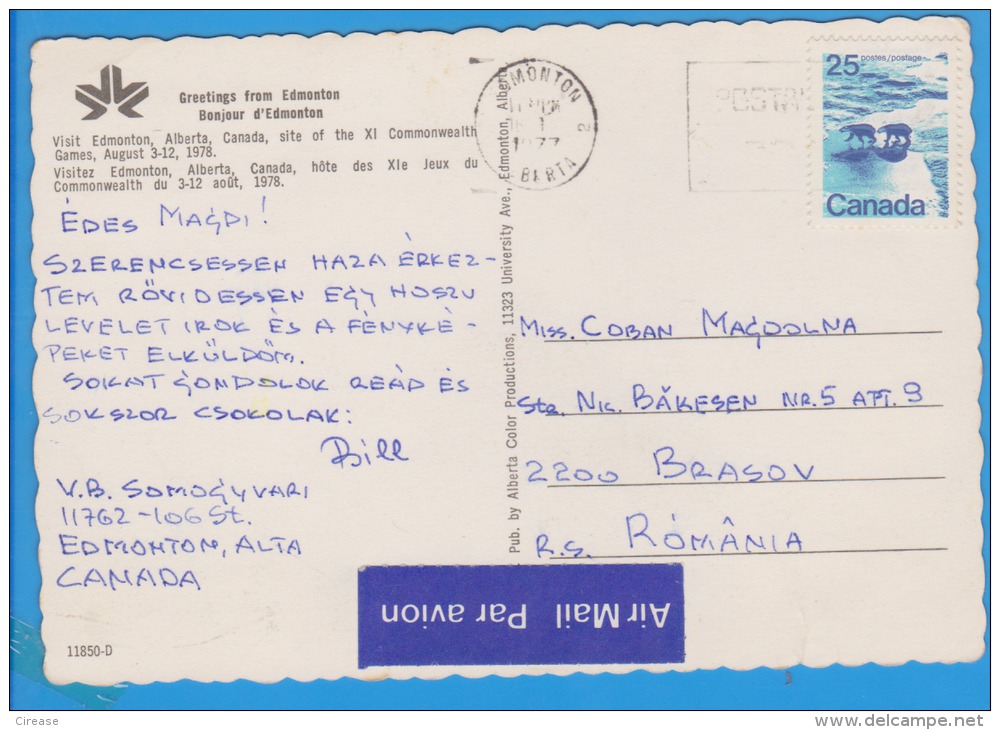 Greetings from Edmonton
Bonjour d'Edmonton
Visit Edmonton, Alberta, Canada, site of the XI Commonwealth
Games, August 3-12, 1978.
Visitez Edmonton, Alberta, Canada, hôte des XIe Jeux du
Commonwealth du 3-12 août, 1978.
ÉDES MAGDI!
SZERENCSESSEN HAZA ÉRKEZ-
TEM RÖVIDESSEN EGY HOSZU
LEVELET IROK ÉS A FÉNYKÉ-
PEKET ELKÜLDÖM.
SOKAT GONDOLOK REÁD ÉS
SOKSZOR CSOKOLAK:
Bill
V.B. SOMOGYVARI
11762-106 St.
EDMONTON, ALTA
CANADA
11850-D
Pub. by Alberta Color Productions, 11323 University Ave., Edmonton, Alberta
EDMONTON
1977
ALBERTA
2
25 postes/postage
Canada
MISS. COBAN MAGDOLNA
Str. NIC. BĂKESEN NR.5 APT. 9
2200 BRASOV
R.S. ROMÂNIA
Air Mail Par avion
Cirease
www.delcampe.net